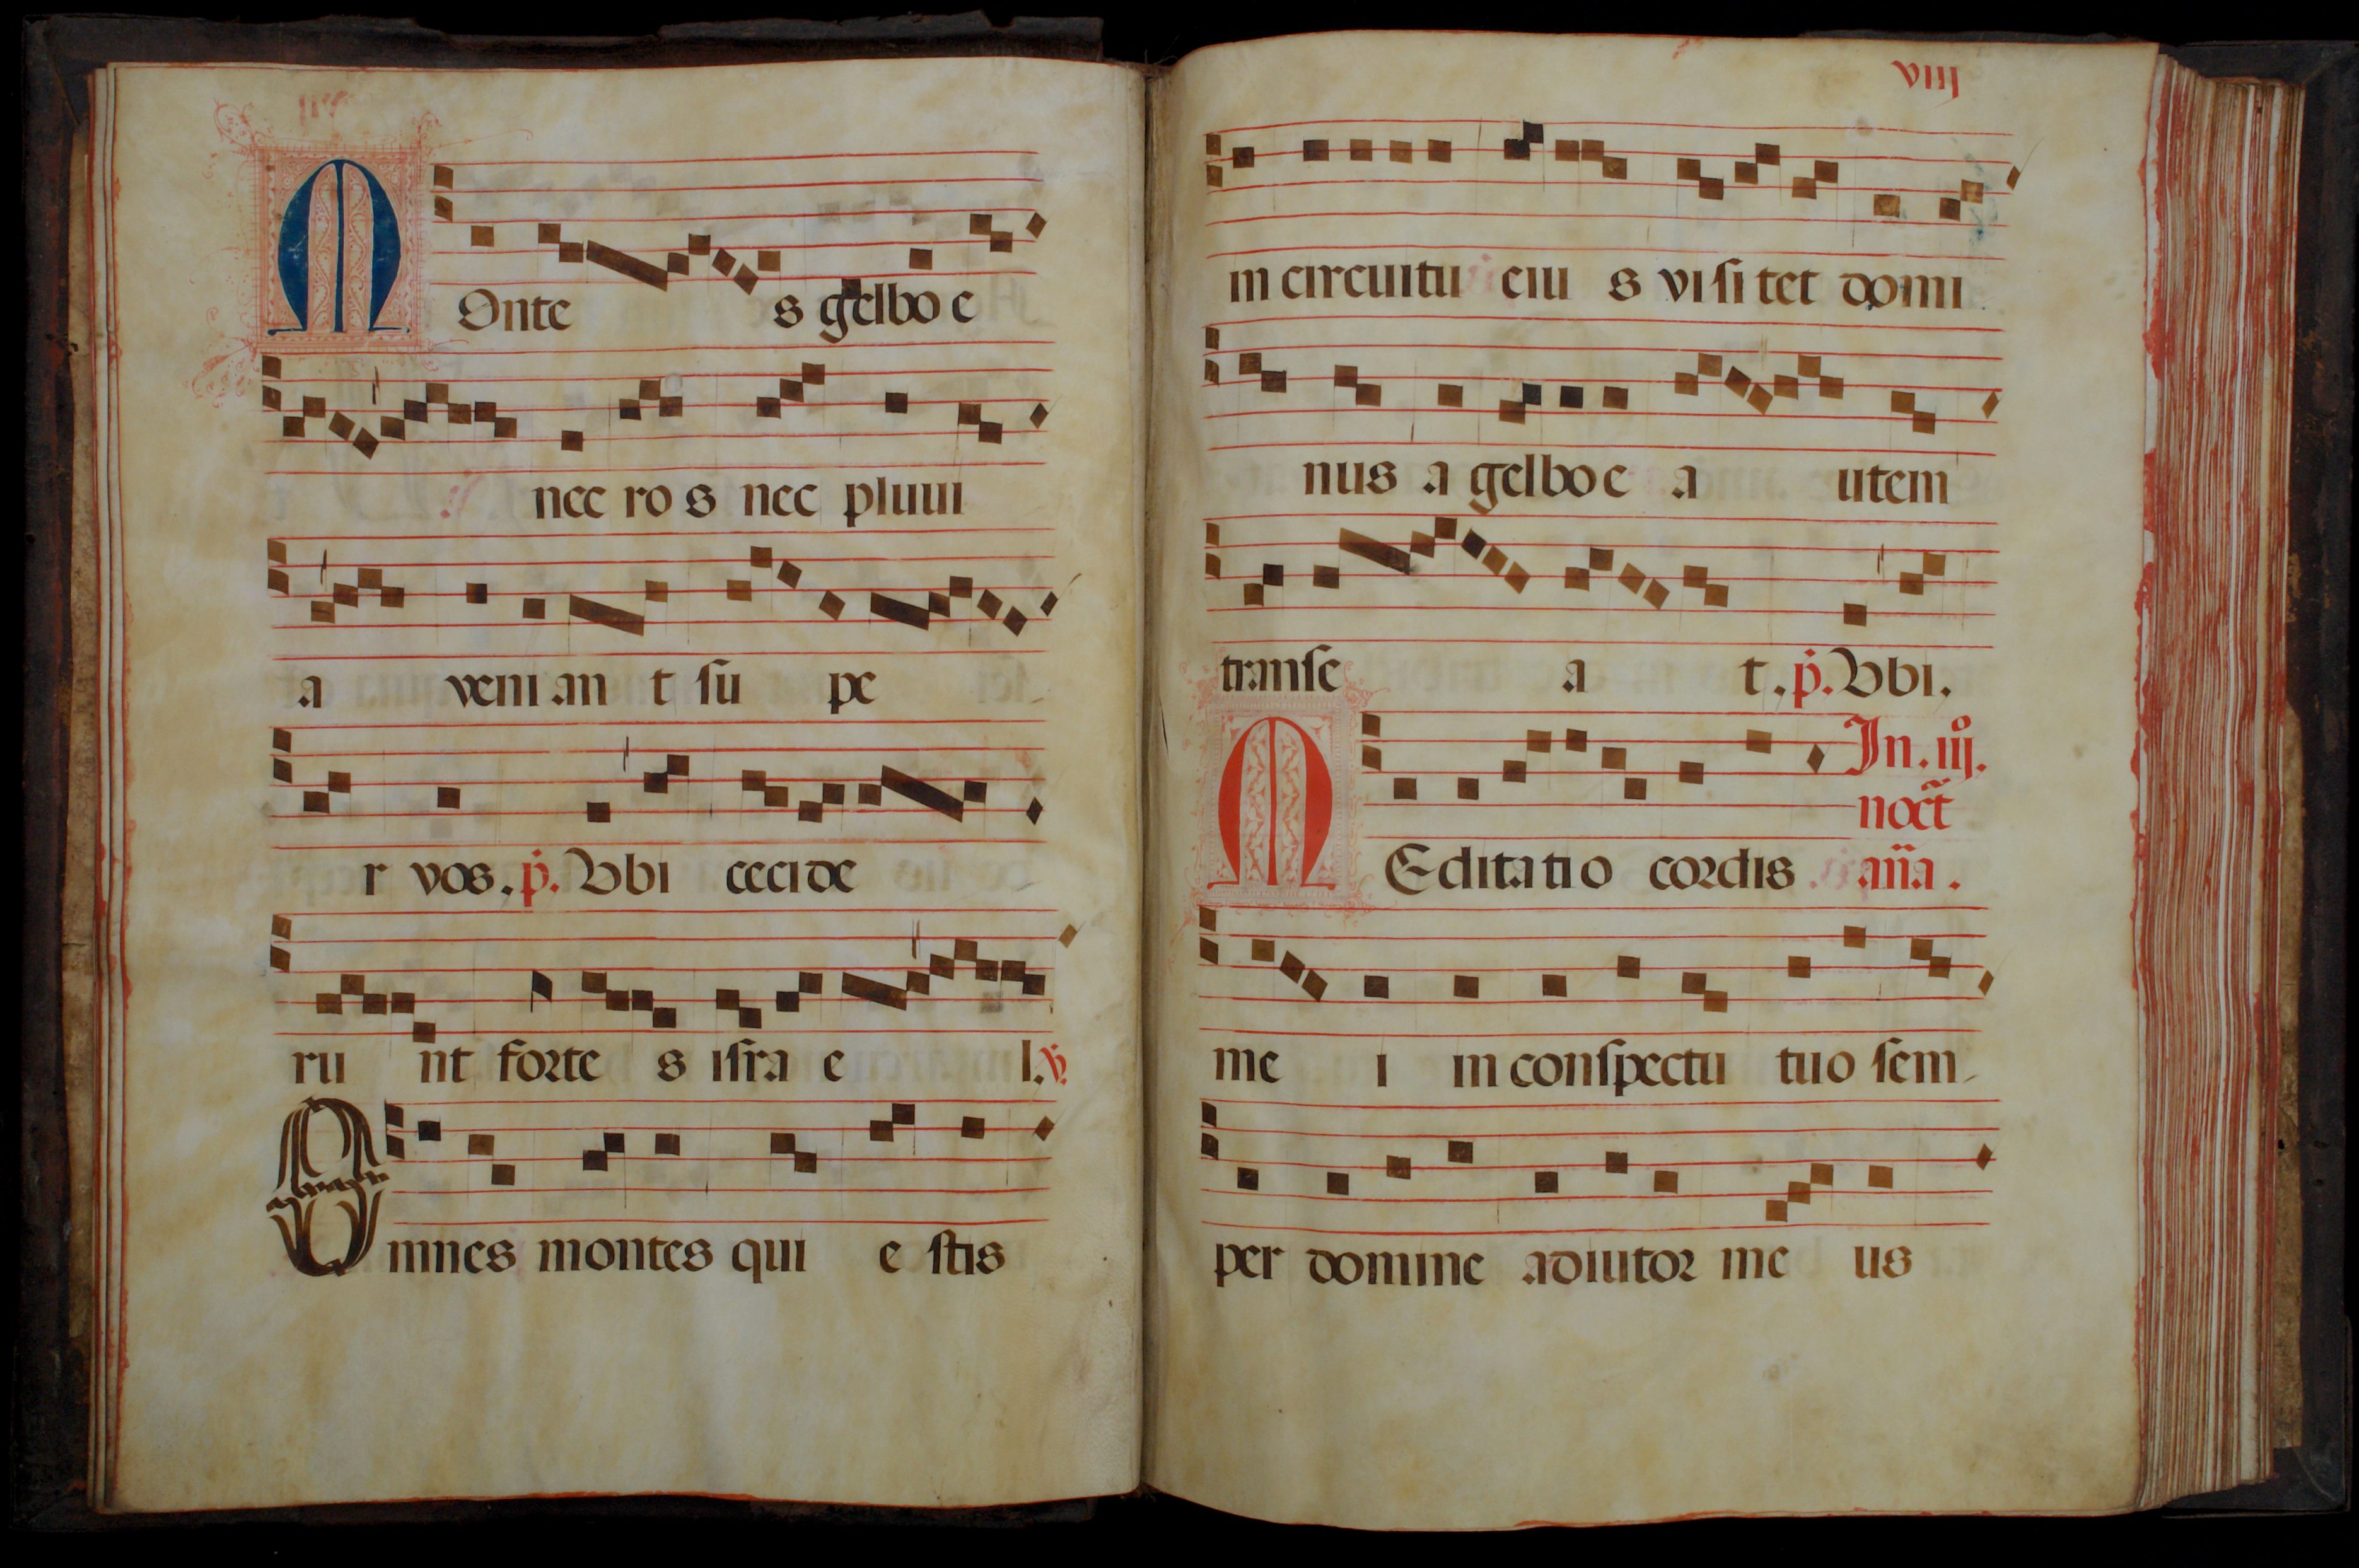 MOnte s gelbo e
nec ro s nec pluui
a veni an t ſu pe
r vos. p̄. Vbi cecide
ru nt forte s iſra e l. ℣.
Omnes montes qui e ſtis
viij
in circuitu eiu s viſi tet domi
nus a gelbo e a utem
tranſe a t. p̄. Vbi.
In. iij.
noct̄
MEditatio cordis an̄a.
me i in conſpectu tuo ſem
per domine adiutor me us